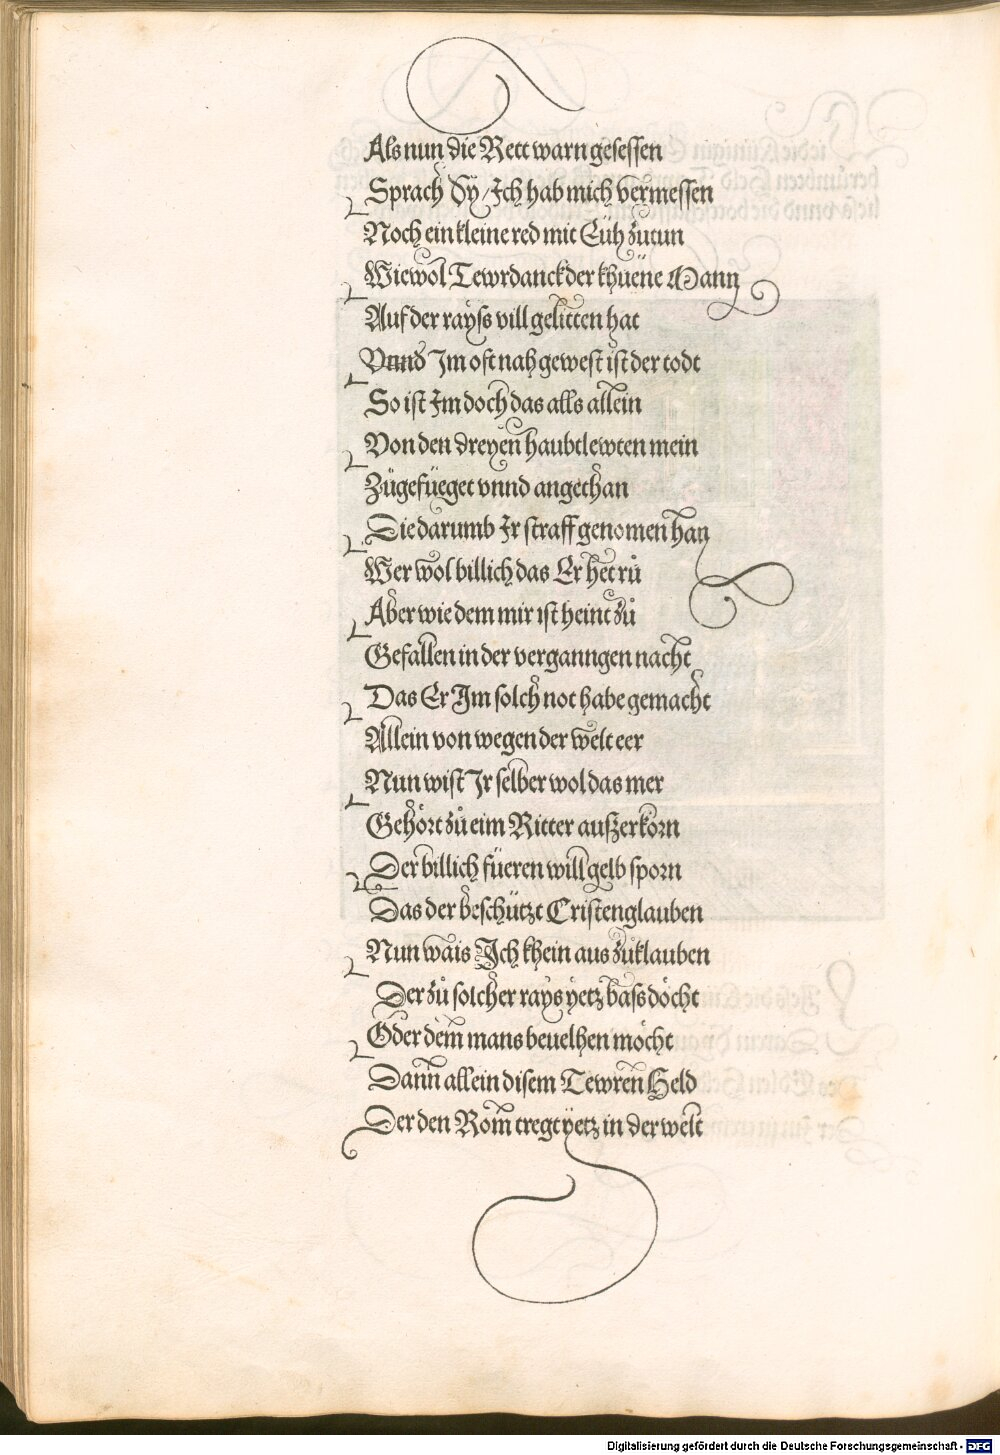 Als nun die Rett warn gesessen
Sprach Sy / Ich hab mich vermessen
Noch ein kleine red mit Eüh zutun
Wiewol Tewrdanck der khuene Mann
Auf der rayss vill gelitten hat
Vnnd Im oft nah gewest ist der todt
So ist Im doch das alls allein
Von den dreyen haubtlewten mein
Zůgefüeget vnnd angethan
Die darumb Ir straff genomen han
Wer wol billich das Er het rů
Aber wie dem mir ist heint zů
Gefallen in der verganngen nacht
Das Er Im solch not habe gemacht
Allein von wegen der welt eer
Nun wist Ir selber wol das mer
Gehört zů eim Ritter außerkorn
Der billich füeren will gelb sporn
Das der beschützt Cristenglauben
Nun wais Ich khein aus zůklauben
Der zů solcher rays yetz bass döcht
Oder dem mans beuelhen möcht
Dann allein disem Tewren Held
Der den Rom tregt yetz in der welt
Digitalisierung gefördert durch die Deutsche Forschungsgemeinschaft - DFG